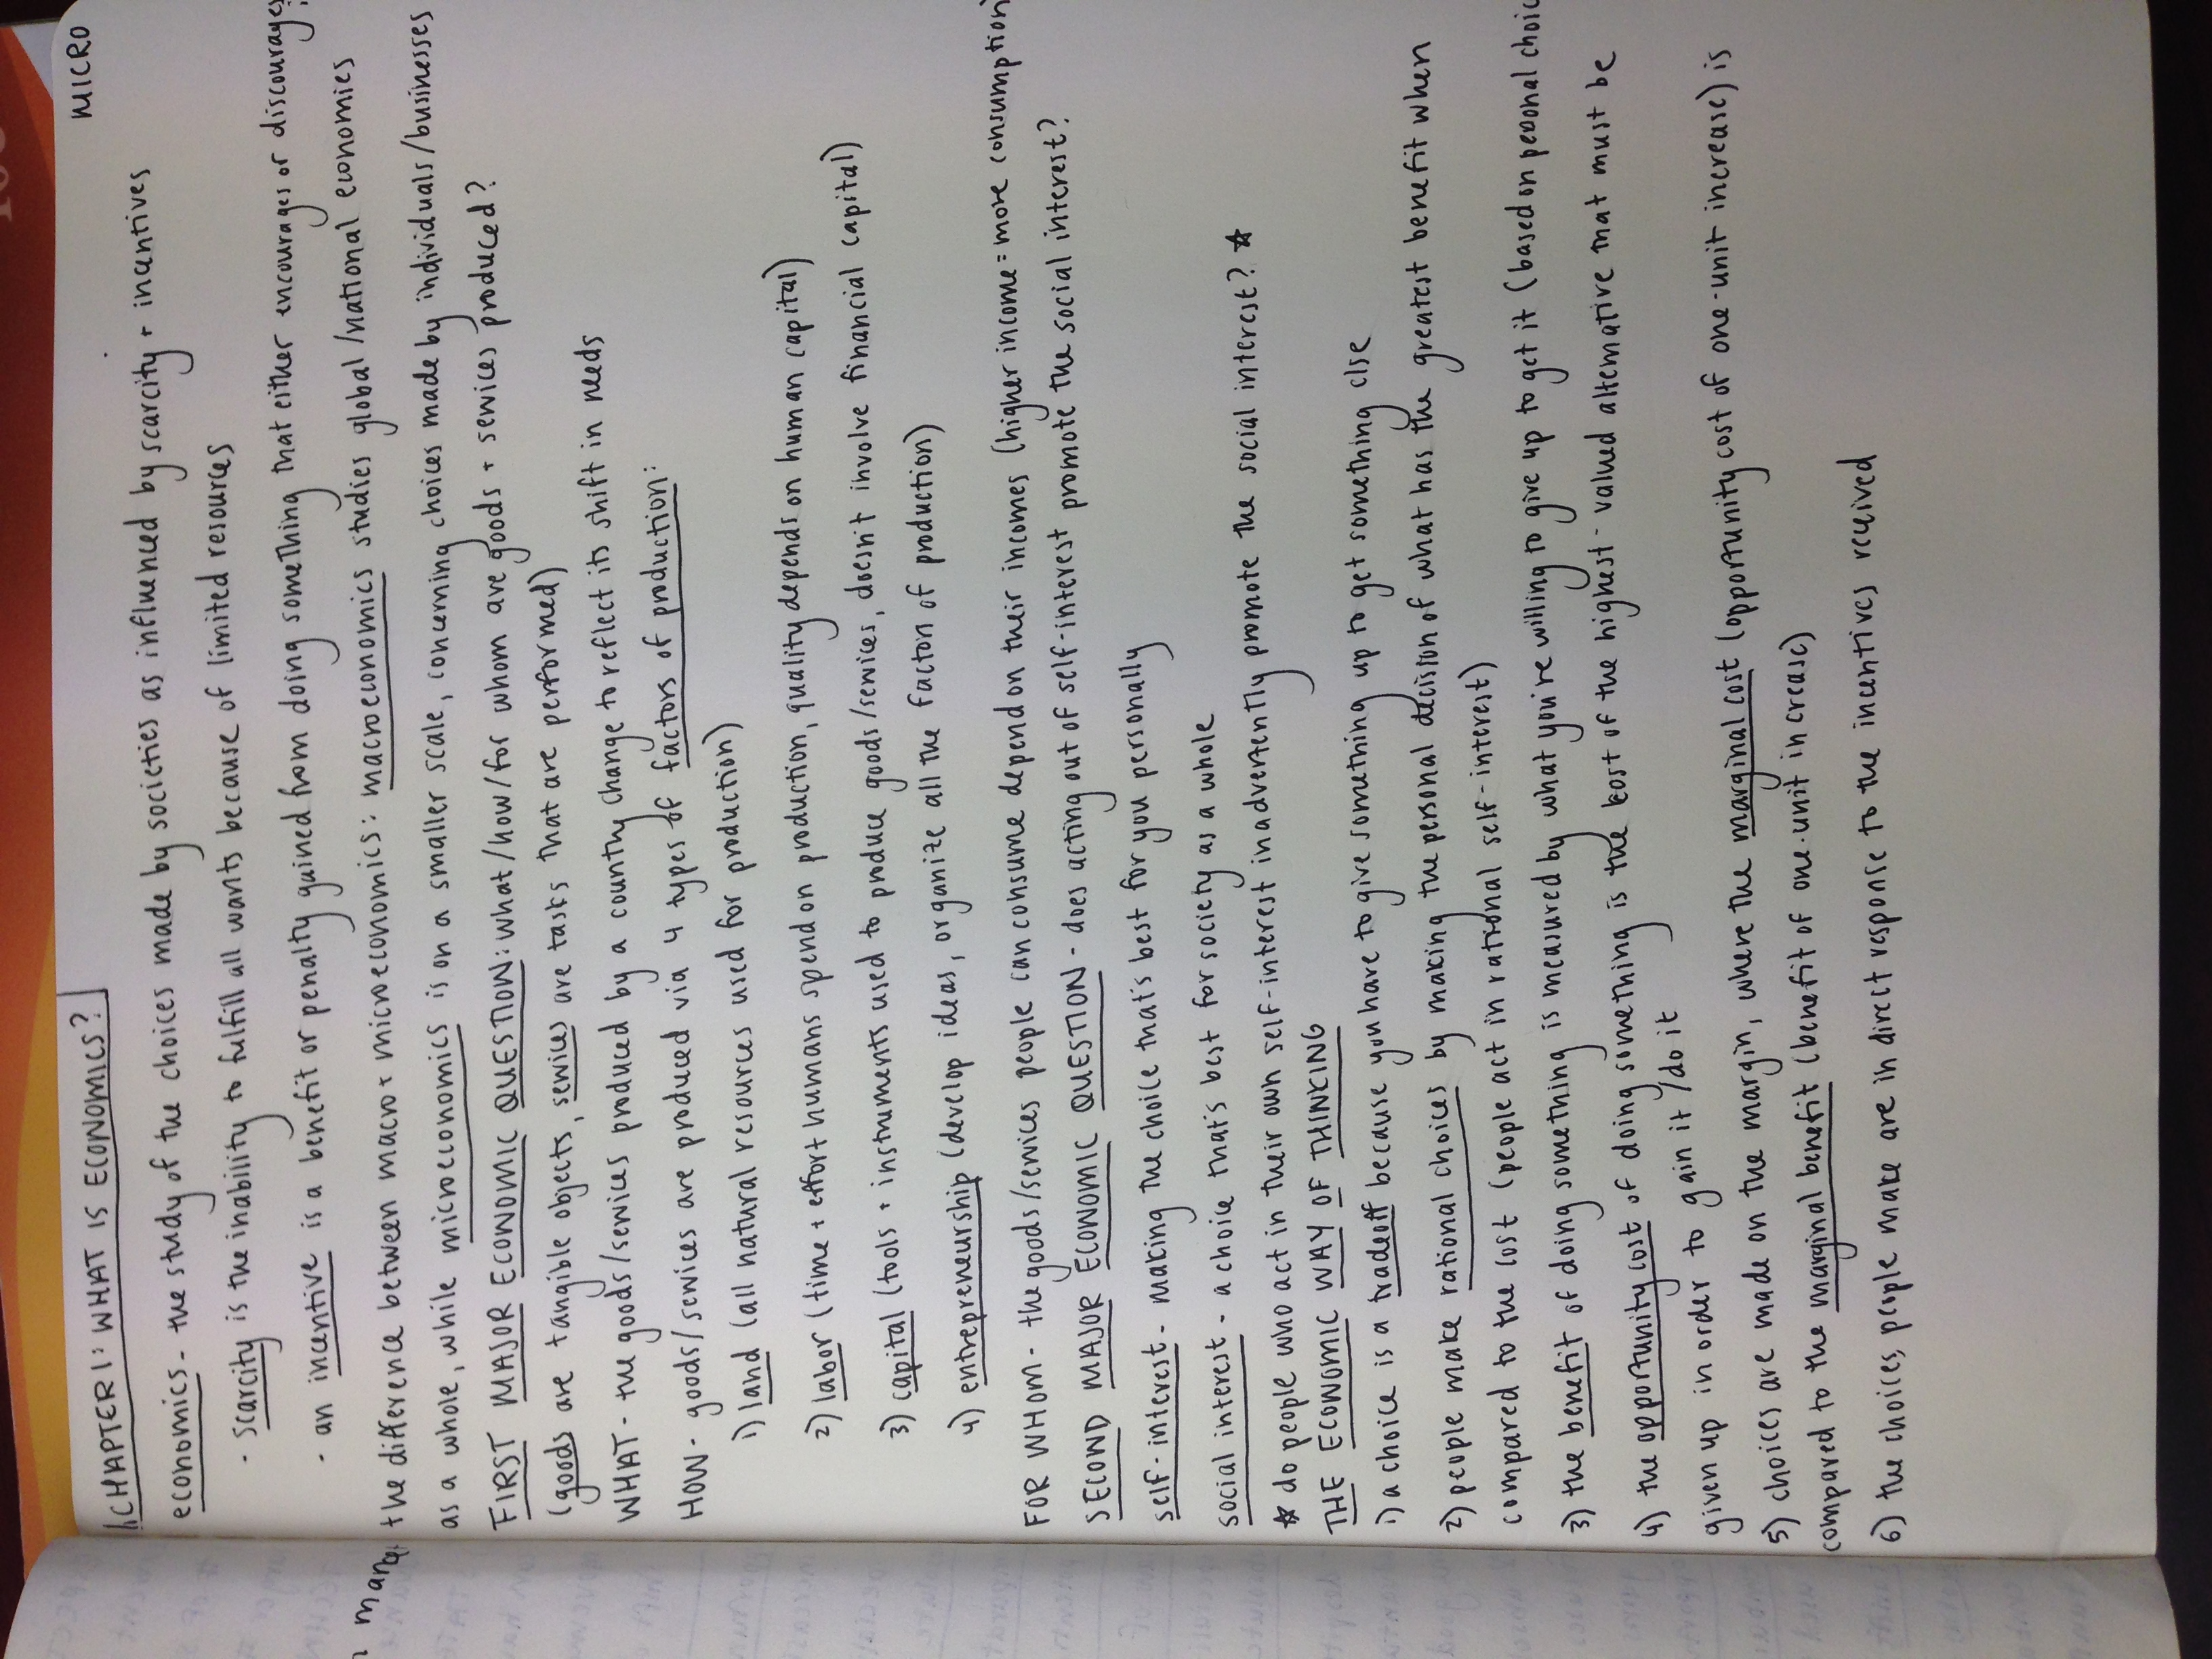 MICRO
CHAPTER 1: WHAT IS ECONOMICS?
economics - the study of the choices made by societies as influenced by scarcity + incentives
· scarcity is the inability to fulfill all wants because of limited resources
· an incentive is a benefit or penalty gained from doing something that either encourages or discourages
the difference between macro + microeconomics: macroeconomics studies global/national economies
as a whole, while microeconomics is on a smaller scale, concerning choices made by individuals/businesses
FIRST MAJOR ECONOMIC QUESTION: what/how/for whom are goods + services produced?
(goods are tangible objects, services are tasks that are performed)
WHAT - the goods/services produced by a country change to reflect its shift in needs
HOW - goods/services are produced via 4 types of factors of production:
1) land (all natural resources used for production)
2) labor (time + effort humans spend on production, quality depends on human capital)
3) capital (tools + instruments used to produce goods/services, doesn't involve financial capital)
4) entrepreneurship (develop ideas, organize all the factors of production)
FOR WHOM - the goods/services people can consume depend on their incomes (higher income = more consumption)
SECOND MAJOR ECONOMIC QUESTION - does acting out of self-interest promote the social interest?
self-interest - making the choice that's best for you personally
social interest - a choice that's best for society as a whole
☆ do people who act in their own self-interest inadvertently promote the social interest? ☆
THE ECONOMIC WAY OF THINKING
1) a choice is a tradeoff because you have to give something up to get something else
2) people make rational choices by making the personal decision of what has the greatest benefit when
compared to the cost (people act in rational self-interest)
3) the benefit of doing something is measured by what you're willing to give up to get it (based on personal choic
4) the opportunity cost of doing something is the cost of the highest-valued alternative that must be
given up in order to gain it/do it
5) choices are made on the margin, where the marginal cost (opportunity cost of one-unit increase) is
compared to the marginal benefit (benefit of one-unit increase)
6) the choices people make are in direct response to the incentives received